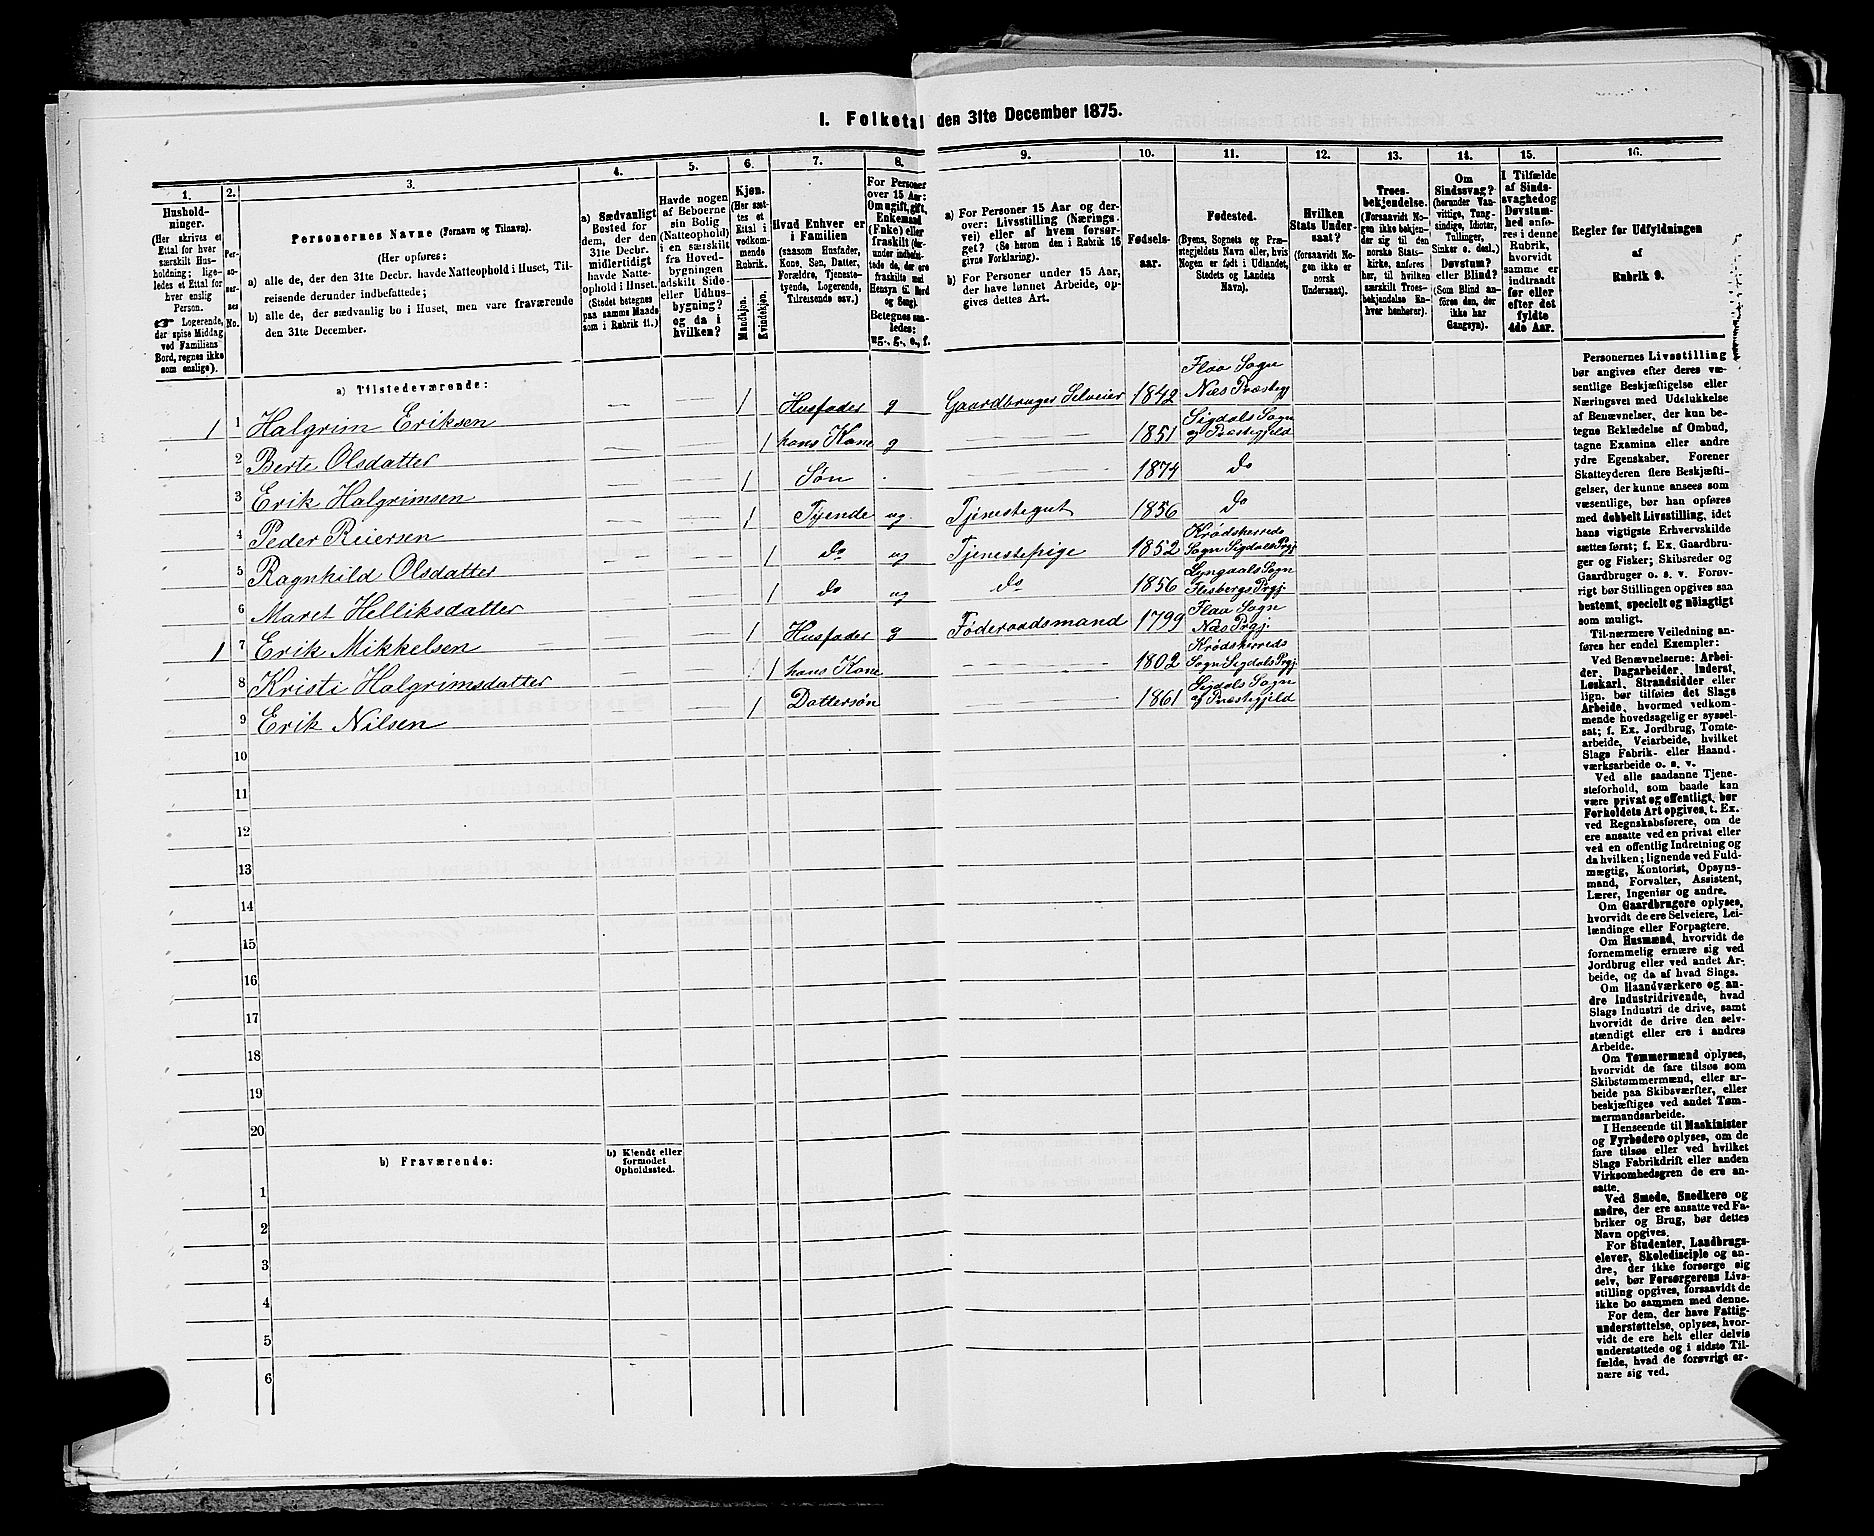 I. Folketal den 31te December 1875.
1. 2. 3. 4. 5. 6. 7. 8. 9. 10. 11. 12. 13. 14. 15. 16.
Hushold-
ninger.
(Her skrives et
Ettal for hver
særskilt Hus-
holdning; lige-
ledes et Ettal for
hver enslig
Person.
☞ Logerende,
der spise Middag
ved Familiens
Bord, regnes ikke
som enslige).
Per-
so-
ner-
nes
No.
Personernes Navne (Fornavn og Tilnavn).
(Her opføres:
a) alle de, der den 31te Decbr. havde Natteophold i Huset, Til-
reisende derunder indbefattede;
b) alle de, der sædvanlig bo i Huset, men vare fraværende
den 31te December.
a) Sædvanligt
Bosted for
dem, der den
31te Decbr.
midlertidigt
havde Natte-
ophold i Huset.
(Stedet betegnes
paa samme Maade
som i Rubrik 11.)
Havde nogen
af Beboerne
sin Bolig
(Natteophold)
i en særskilt
fra Hoved-
bygningen
adskilt Side-
eller Udhus-
bygning?
og da i
hvilken?
Kjøn.
(Her sæt-
tes et
Ettal i
vedkom-
mende
Rubrik.
Mandkjøn.
Kvindekjøn.
Hvad Enhver er
i Familien
(saasom Husfader,
Kone, Søn, Datter,
Forældre, Tjeneste-
tyende, Logerende,
Tilreisende osv.)
For Personer
over 15 Aar:
Om ugift, gift,
Enkemand
(Enke) eller
fraskilt
Betegnes saa-
ledes:
ug., g., e., f.
a) For Personer 15 Aar og der-
over: Livsstilling (Nærings-
vei) eller af hvem forsør-
get? (Se herom den i Rubrik 16
givne Forklaring).
b) For Personer under 15 Aar,
der have lønnet Arbeide, op-
gives dettes Art.
Fødsels-
aar.
Fødested.
(Byens, Sognets og Præ-
stegjeldets Navn, eller, hvis
Nogen er født i Udlandet,
Stedets og Landets
Navn).
Hvilken
Stats Under-
saat?
(forsaavidt No-
gen ikke er
norsk
Undersaat).
Troes-
bekjendelse.
(Forsaavidt No-
gen ikke bekjen-
der sig til den
norske Stats-
kirke, anføres
her, til hvilken
særskilt Troes-
bekjendelse En-
hver henhører).
Om
Sindssvag?
(herunder Van-
vittige, Tung-
sindige, Idioter,
Tullinger,
Sinker o. desl.)
Døvstum?
eller Blind?
(Som Blind an-
føres den, der
ikke har
Gangsyn).
I Tilfælde
af Sinds-
svaghed og
Døvstum-
hed anfø-
res i denne
Rubrik,
hvorvidt
samme er
indtraadt
før eller
efter det
fyldte
4de Aar.
Regler for Udfyldningen
af
Rubrik 9.
a) Tilstedeværende:
1 1 Halgrim Eriksen — — 1 Husfader g Gaardbruger Selveier 1842 Flaa Sogn Næs Præstegj
2 Berte Olsdatter — — 1 hans Kone g — 1851 Sigdals Sogn og Præstegjeld
3 Erik Halgrimsen — — 1 Søn . — 1874 do
4 Peder Reiersen — — 1 Tyende ug Tjenestegut 1856 do
5 Ragnhild Olsdatter — — 1 do ug Tjenestepige 1852 Krødsherreds Sogn Sigdals Prgj.
6 Maret Helliksdatter — — 1 do ug do 1856 Lyngdals Sogn Flesbergs Prgj.
1 7 Erik Mikkelsen — — 1 Husfader g Føderaadsmand 1799 Flaa Sogn Næs Prgj.
8 Kristi Halgrimsdatter — — 1 hans Kone — 1802 Krødsherreds Sogn Sigdals Prgj.
9 Erik Nilsen — — 1 Dattersøn — 1861 Sigdals Sogn og Præstegjeld
10
11
12
13
14
15
16
17
18
19
20
b) Fraværende:
b) Kjendt eller
formodet
Opholdssted.
1
2
3
4
5
6
Personernes Livsstilling
bør angives efter deres væ-
sentlige Beskjæftigelse eller
Næringsvei med Udelukkelse
af Benævnelser, der kun be-
tegne Beklædelse af Ombud,
tagne Examina eller andre
ydre Egenskaber. Forener
Skatteyderen flere Beskjæfti-
gelser, der kunne ansees som
væsentlige, bør han opføres
med dobbelt Livsstilling, idet
hans vigtigste Erhvervskilde
sættes først; f. Ex. Gaardbru-
ger og Fisker; Skibsreder og
Gaardbruger o. s. v. Forøv-
rigt bør Stillingen opgives saa
bestemt, specielt og nøiagtigt
som muligt.
Til nærmere Veiledning an-
føres her endel Exempler:
Ved Benævnelserne: Arbei-
der, Dagarbeider, Inderst,
Løskarl, Strandsidder eller
lign. bør tilføies det Slags
Arbeide, hvormed vedkom-
mende hovedsagelig er syssel-
sat; f. Ex. Jordbrug, Tomte-
arbeide, Veiarbeide, hvilket
Slags Fabrik- eller Haand-
værksarbeide o. s. v.
Ved alle saadanne Tjene-
steforhold, som baade kan
være privat og offentligt, bør
Forholdets Art opgives, t. Ex.
ved Regnskabsførere, om de
ere ansatte ved en privat eller
ved en offentlig Indretning og
da hvilken; lignende ved Fuld-
mægtig, Kontorist, Opsyns-
mand, Forvalter, Assistent,
Lærer, Ingeniør og andre.
Om Gaardbrugere oplyses,
hvorvidt de ere Selveiere, Lei-
lændinge eller Forpagtere.
Om Husmænd, hvorvidt de
fornemmelig ernære sig ved
Jordbrug eller ved andet Ar-
beide, og da af hvad Slags.
Om Haandværkere og an-
dre Industridrivende, hvad
Slags Industri de drive, samt
hvorvidt de drive den selv-
stændigt eller ere i andres
Arbeide.
Om Tømmermænd oplyses,
hvorvidt de fare tilsøs som
Skibstømmermænd, eller ar-
beide paa Skibsværfter, eller
beskjæftiges ved andet Tøm-
mermandsarbeide.
I Henseende til Maskinister
og Fyrbødere oplyses, om de
fare tilsøs eller ved hvilket
Slags Fabrikdrift eller anden
Virksomhedsgren de ere an-
satte.
Ved Smede, Snedkere og
andre, der ere ansatte ved Fa-
briker og Brug, bør dettes
Navn opgives.
For Studenter, Landbrugs-
elever, Skoledisciple og an-
dre, der ikke forsørge sig
selv, bør Forsørgerens Livs-
stilling opgives, forsaavidt de
ikke bo sammen med denne.
For dem, der have Fattig-
understøttelse, oplyses, hvor-
vidt de ere helt eller delvis
understøttede og i sidste Til-
fælde, hvad de forøvrigt er-
nære sig ved.